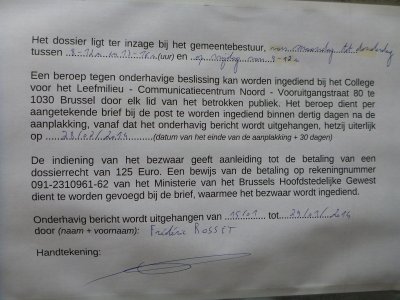 Het dossier ligt ter inzage bij het gemeentebestuur, van maandag tot donderdag
tussen 9-12u en 13-16u (uur) en op vrijdag van 9-12u
Een beroep tegen onderhavige beslissing kan worden ingediend bij het College
voor het Leefmilieu - Communicatiecentrum Noord - Vooruitgangstraat 80 te
1030 Brussel door elk lid van het betrokken publiek. Het beroep dient per
aangetekende brief bij de post te worden ingediend binnen dertig dagen na de
aanplakking, vanaf dat het onderhavig bericht wordt uitgehangen, hetzij uiterlijk
op 28/02/2014 (datum van het einde van de aanplakking + 30 dagen)
De indiening van het bezwaar geeft aanleiding tot de betaling van een
dossierrecht van 125 Euro. Een bewijs van de betaling op rekeningnummer
091-2310961-62 van het Ministerie van het Brussels Hoofdstedelijke Gewest
dient te worden gevoegd bij de brief, waarmee het bezwaar wordt ingediend.
Onderhavig bericht wordt uitgehangen van 15/01 tot 29/01/2014
door (naam + voornaam): Frédéric ROSSET
Handtekening: